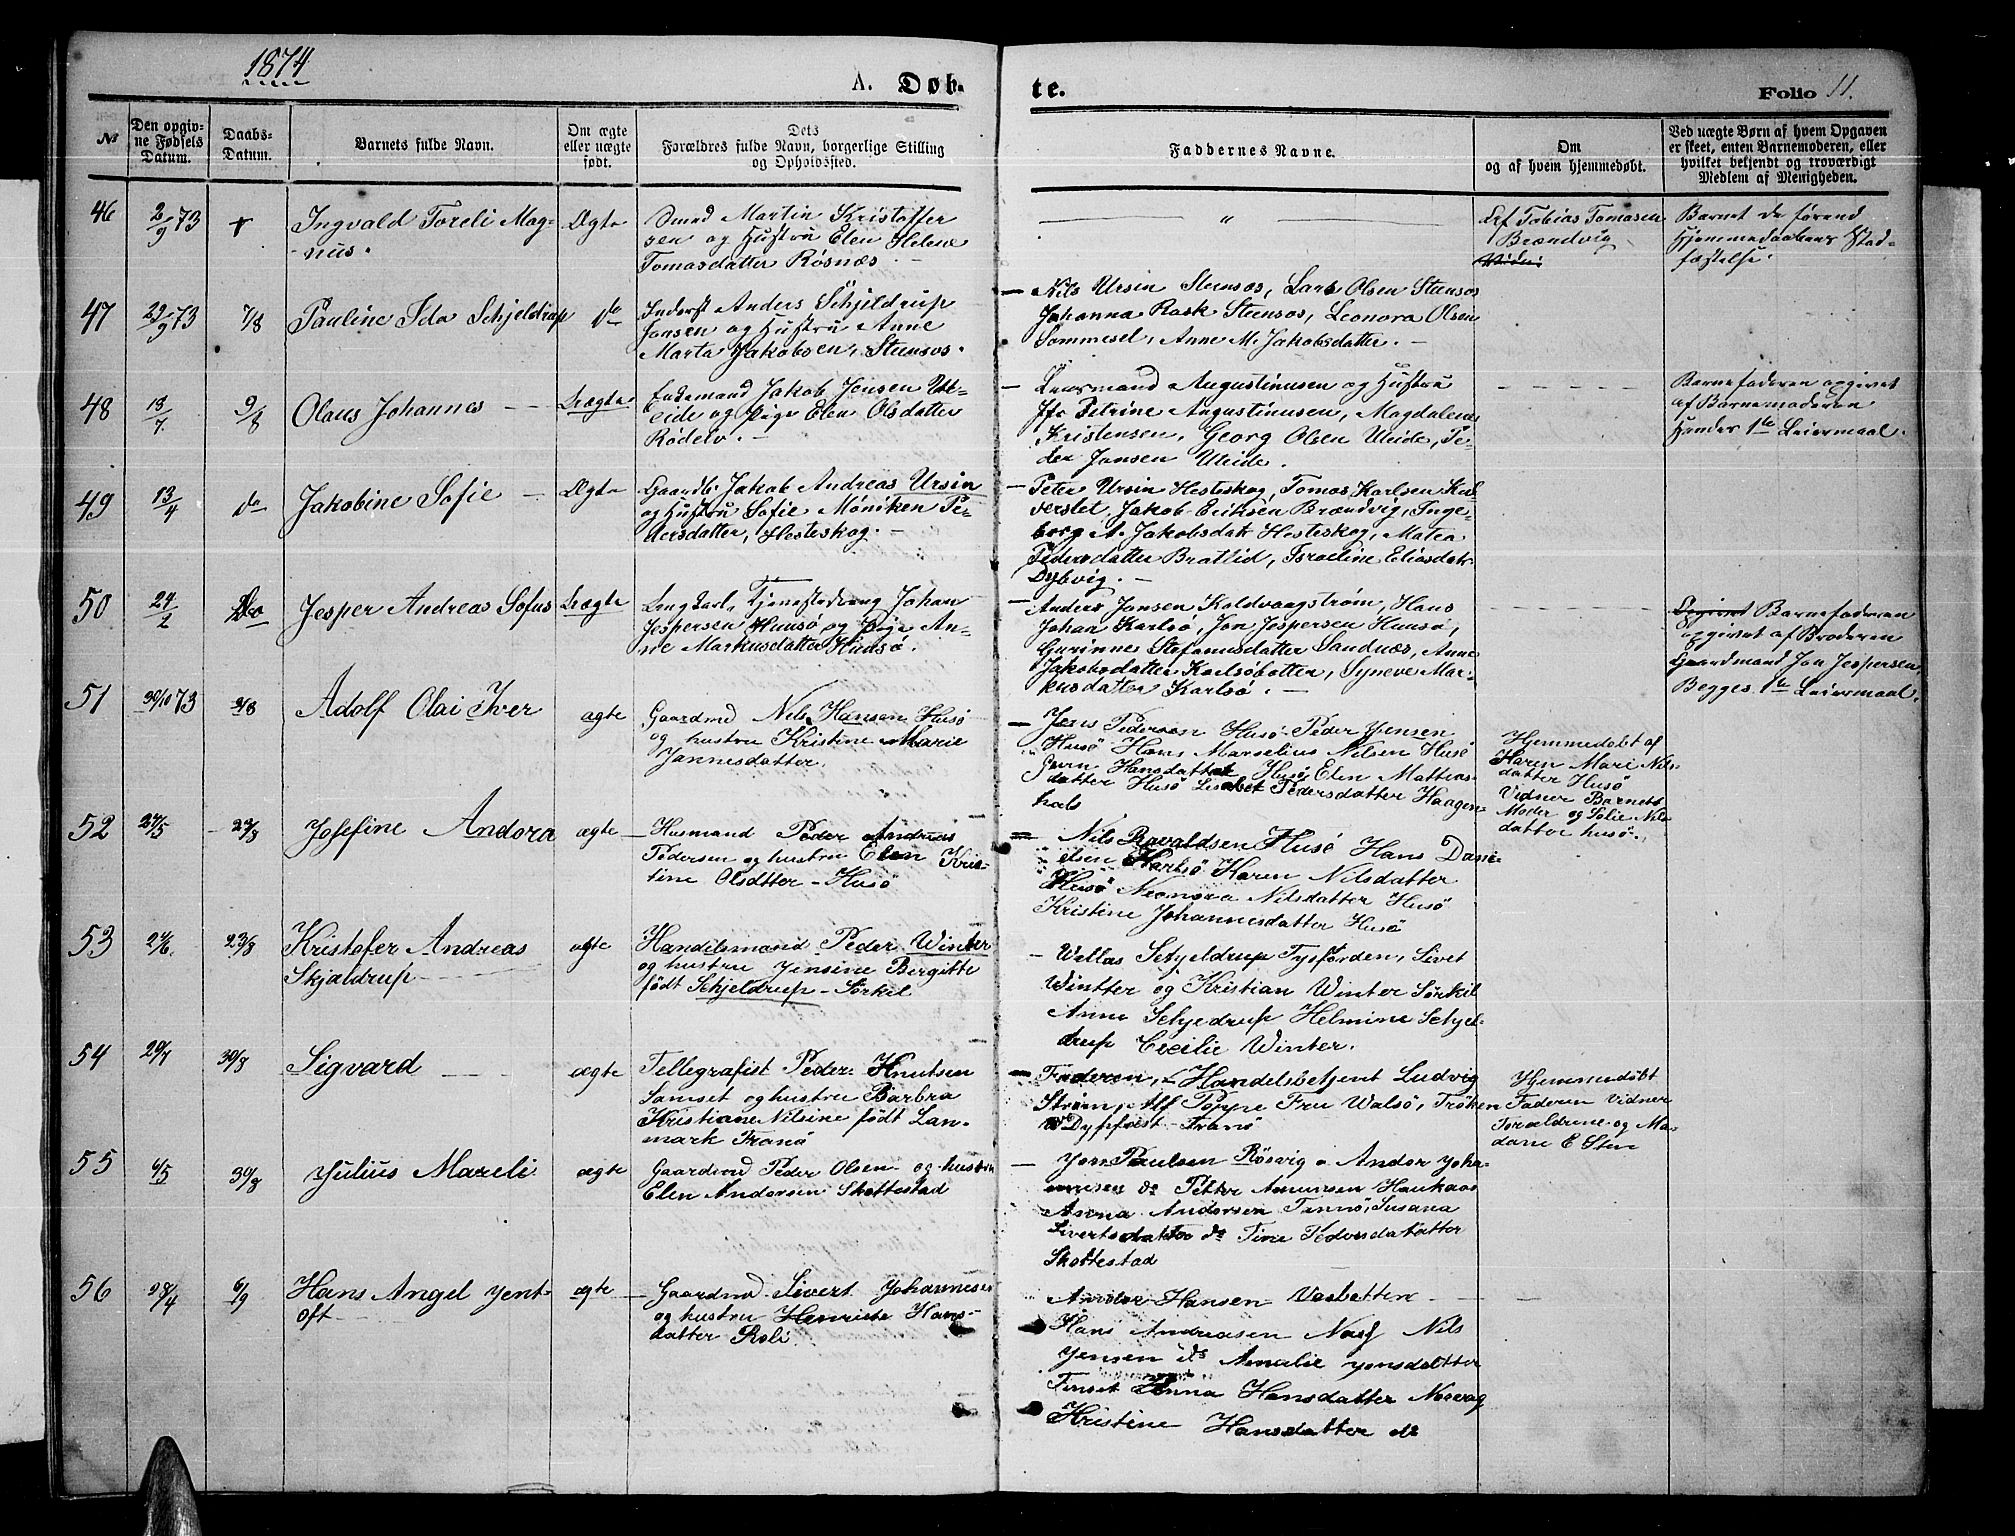 1874
A. Døb-
te.
Folio 11.
№
Den opgiv-
ne Fødsels
Datum.
Daabs-
Datum.
Barnets fulde Navn.
Om ægte
eller uægte
født.
Dets
Forældres fulde Navn, borgerlige Stilling
og Opholdssted.
Faddernes Navne.
Om
og af hvem hjemmedøbt.
Ved uægte Børn af hvem Opgaven
er skeet, enten Barnemoderen, eller
hvilket bekjendt og troværdigt
Medlem af Menigheden.
46
2/9 73
+
Ingvald Toreli Mag-
nus.
Ægte
Smed Martin Kristoffer
sen og Hustru Elen Helene
Tomasdatter Røsnæs.
"
Tobias Tomasen
Brændvig
Barnet de førend
Hjemmedaabens Stad-
fæstelse.
47
29/9 73
7/8
Pauline Ida Schjeldrup
do
Inderst Anders Schjeldrup
Jensen og Hustru Anne
Marta Jakobsen, Stensøs.
Nils Ursin Stensøs, Lars Olsen Stensøs
Johanna Rask Stensøs, Leonora Olsen
Sommesel, Anne M. Jakobsdatter.
48
18/7.
9/8
Olaus Johannes
Uægte
Enkemand Jakob Jensen Ul-
eide og Pige Elen Olsdatter
Rødelv.
Leiermand Augustinusen og Hustru
Petrine Augustinusen, Magdalena
Kristensen, Georg Olsen Uleide, Pe-
der Jansen Uleide.
Barnefaderen opgivet
af Barnemoderen
Hendes 1te Leiermaal.
49
13/4
do
Jakobine Sofie
Ægte
Gaardb. Jakob Andreas Ursin
og Hustru Sofie Møniken Pe-
dersdatter, Hesteskog.
Peter Ursin Hesteskog, Tomas Karlsen Kul
verslet, Jakob Eriksen Brændvig, Inge-
borg A. Jakobsdatr Hesteskog, Matea
Pedersdatter Bratlid, Israeline Eliasdatr
Dybvig.
50
24/2
Do
Jesper Andreas Sofus
Uægte
Ungkarl, Tjenestedreng Johan
Jespersen Hunsø og Pige An-
ne Markusdatter Hunsø.
Anders Jansen Koldvaagstrøm, Hans
Johan Karlsø, Jon Jespersen Hunsø,
Gurinnes Stefanusdatter Sandnæs, Anne
Jakobsdatter Karlsøbotter, Syneve Mar-
kusdatter Karlsø.
Opgivet Barnefaderen
opgivet af Broderen
Gaardmand Jon Jespersen.
Begges 1te Leiermaal.
51
30/10 73
9/8
Adolf Olai Iver
ægte
Gaardmd Nils Hansen Husø
og hustru Kristine Marie
Jannesdatter.
Jens Pedersen Husø Peder Jensen
Husø Hans Marselius Nilsen Husø
Hansdatter Husø Elen Mattias
datter Husø Lisabet Pedersdatter Haagen-
hals
Hjemmedøbt af
Karen Mari Nils-
datter Husø
Vidner Barnets
Moder og Solie Nils
datter husø.
52
24/5
23/8
Josefine Andora
ægte
Husmand Peder Andreas
Pedersen og hustru Elen Kris-
tine Olsdtter - Husø
Nils Ravaldsen Husø Hans Dani-
elsen Karlsø Karen Nilsdatter
Husø Neonora Nilsdatter Husø
Kristine Johannesdatter Husø
53
24/6.
23/8
Kristofer Andreas
Skjældrup
ægte
Handelsmand Peder Winter
og hustru Jensine Bergitte
født Schjeldrup - Sørkil
Wellas Schjeldrup Tysfjorden, Sivet
Wintter og Kristian Winter Sørkil
Anna Schjedrup Helmine Schjel-
drup Cecilie Winter.
54
29/7
30/8
Sigvard
ægte
Tellegrafist Peder Knutsen
Samset og hustru Barbra
Kristiane Nilsine født Lan-
mark Tranø
Faderen, Handelsbetjent Ludvig
Strøm, Alf Poppe Fru Walsø, Frøken
Dypfæst - Tranø
Hjemmedøbt
Faderen Vidner
Foraldrene og Ma-
dam E Sten
55
6/5
30/8
Julius Mareli
ægte
Gaardmd Peder Olsen og hustru
Elen Andersen Skottestad
Jørn Paulsen Røsvig o Andor Joha-
nnesen do Petter Amunsen Haukaas
Anna Andorsen Tannø, Susana
Sivertsdatter do Tine Pedersdatatter
Skottestad
56
28/4
6/9
Hans Angel Jent-
oft
ægte
Gaardmd Sivert Johannesen
og hustru Henriette Hans-
datter Roli
Andor Hansen Vesbotten
Hans Andreasen Næs Nils
Jensen ds Amalie Jensdattter
Tinset Anna Hansdatter Nesvag
Kristine Hansdatter do